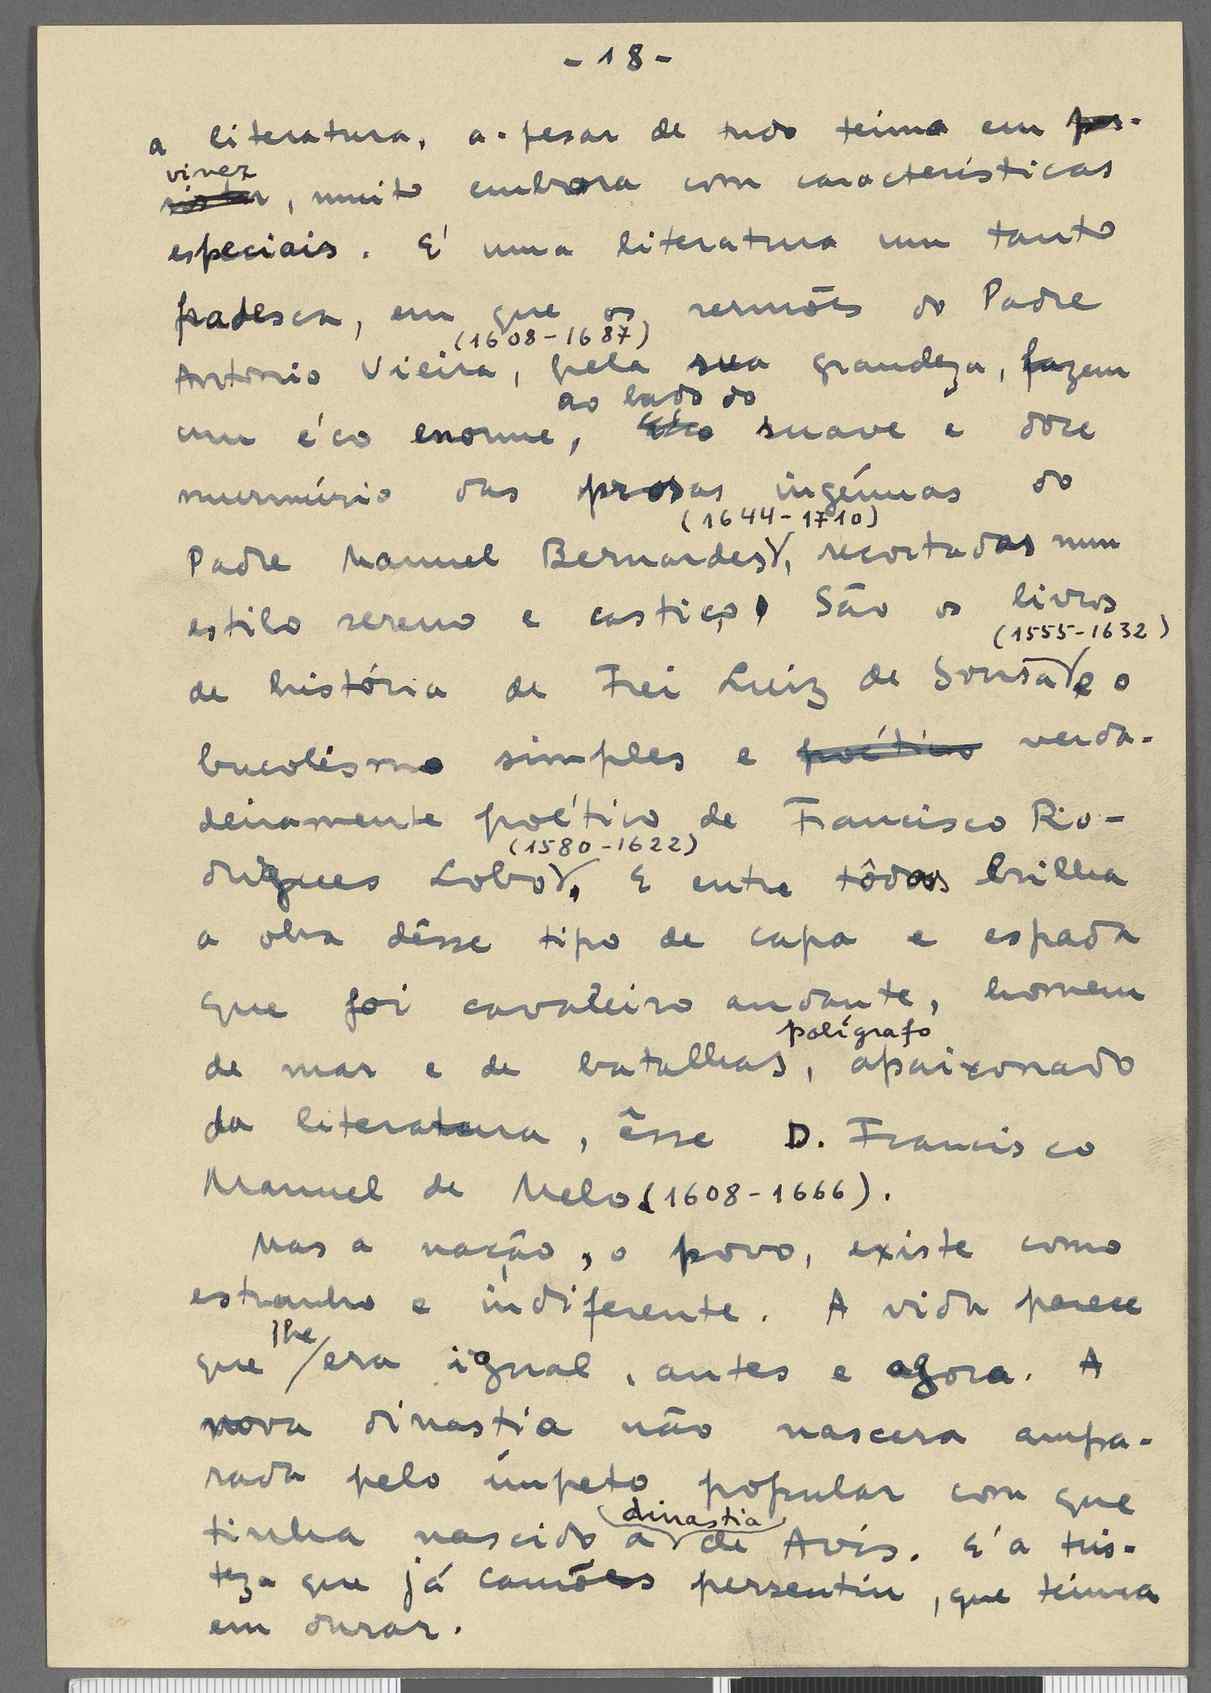 - 18 -
a literatura, a-pesar de tudo teima em per-
viver
sistir, muito embora com características
especiais. E' uma literatura um tanto
fradesca, em que os sermões do Padre
(1608-1687)
António Vieira, pela sua grandeza, fazem
ao lado do
um éco enorme, suave e doce
murmúrio das prosas ingénuas do
(1644-1710)
Padre Manuel Bernardes, recortadas num
estilo sereno e castiço. São os livros
(1555-1632)
de história de Frei Luiz de Sousa e o
bucolismo simples e poético verda-
deiramente poético de Francisco Ro-
(1580-1622)
drigues Lobo. E entre todas brilha
a obra dêsse tipo de capa e espada
que foi cavaleiro andante, homem
polígrafo
de mar e de batalhas, apaixonado
da literatura, êsse D. Francisco
Manuel de Melo (1608-1666).
Mas a nação, o povo, existe como
estranho e indiferente. A vida parece
lhe
que era igual, antes e agora. A
nova dinastia não nascera ampa-
rada pelo ímpeto popular com que
dinastia
tinha nascido a de Avis. E' a tris-
teza que já Camões persentiu, que teima
em durar.